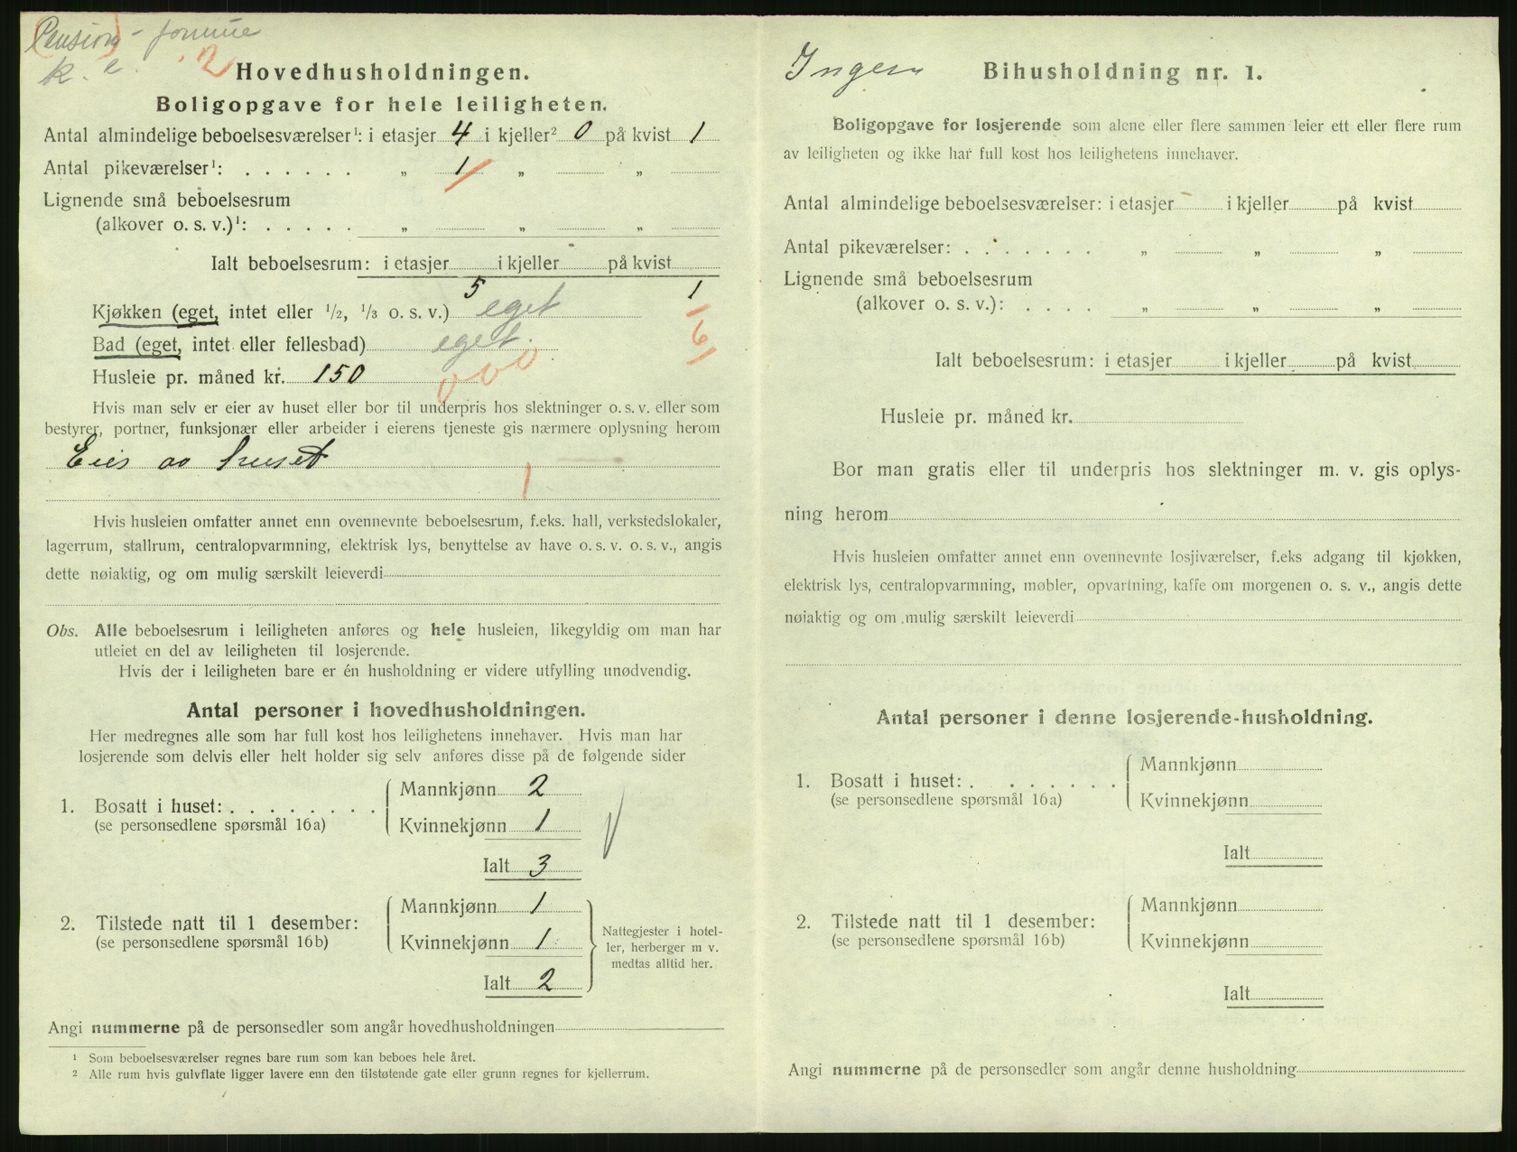 Pension - formue
k. e. 2
Hovedhusholdningen.
Boligopgave for hele leiligheten.
Antal almindelige beboelsesværelser¹: i etasjer 4 i kjeller² 0 på kvist 1
Antal pikeværelser¹: . . . . . . „ 1 „ „
Lignende små beboelsesrum
(alkover o. s. v.)¹: . . . . . „ „ „
Ialt beboelsesrum: i etasjer 5 i kjeller på kvist 1
Kjøkken (eget, intet eller ½, ⅓ o. s. v.) eget
6
Bad (eget, intet eller fellesbad) eget
Husleie pr. måned kr. 150 000
Hvis man selv er eier av huset eller bor til underpris hos slektninger o. s. v. eller som
bestyrer, portner, funksjonær eller arbeider i eierens tjeneste gis nærmere oplysning herom
Eies av huset
1
Hvis husleien omfatter annet enn ovennevnte beboelsesrum, f.eks. hall, verkstedslokaler,
lagerrum, stallrum, centralopvarmning, elektrisk lys, benyttelse av have o. s. v. o. s. v., angis
dette nøiaktig, og om mulig særskilt leieverdi
Obs. Alle beboelsesrum i leiligheten anføres og hele husleien, likegyldig om man har
utleiet en del av leiligheten til losjerende.
Hvis der i leiligheten bare er én husholdning er videre utfylling unødvendig.
Antal personer i hovedhusholdningen.
Her medregnes alle som har full kost hos leilighetens innehaver. Hvis man har
losjerende som delvis eller helt holder sig selv anføres disse på de følgende sider
1. Bosatt i huset: . . . . . . . .
(se personsedlene spørsmål 16a)
Mannkjønn 2
Kvinnekjønn 1
Ialt 3
2. Tilstede natt til 1 desember:
(se personsedlene spørsmål 16b)
Mannkjønn 1
Kvinnekjønn 1
Ialt 2
Nattegjester i hotel-
ler, herberger m v.
medtas alltid her.
Angi nummerne på de personsedler som angår hovedhusholdningen
¹ Som beboelsesværelser regnes bare rum som kan beboes hele året.
² Alle rum hvis gulvflate ligger lavere enn den tilstøtende gate eller grunn regnes for kjellerrum.
Ingen Bihusholdning nr. 1.
Boligopgave for losjerende som alene eller flere sammen leier ett eller flere rum
av leiligheten og ikke har full kost hos leilighetens innehaver.
Antal almindelige beboelsesværelser: i etasjer i kjeller på kvist
Antal pikeværelser: . . . . . . . „ „ „
Lignende små beboelsesrum
(alkover o. s. v.): . . . . „ „ „
Ialt beboelsesrum: i etasjer i kjeller på kvist
Husleie pr. måned kr.
Bor man gratis eller til underpris hos slektninger m. v. gis oplys-
ning herom
Hvis husleien omfatter annet enn ovennevnte losjiværelser, f.eks adgang til kjøkken,
elektrisk lys, centralopvarmning, møbler, opvartning, kaffe om morgenen o. s. v., angis dette
nøiaktig og om mulig særskilt leieverdi
Antal personer i denne losjerende-husholdning.
1. Bosatt i huset: . . . . . . .
(se personsedlene spørsmål 16a)
Mannkjønn
Kvinnekjønn
Ialt
2. Tilstede natt til 1 desember:
(se personsedlene spørsmål 16b)
Mannkjønn
Kvinnekjønn
Ialt
Angi nummerne på de personsedler som angår denne husholdning